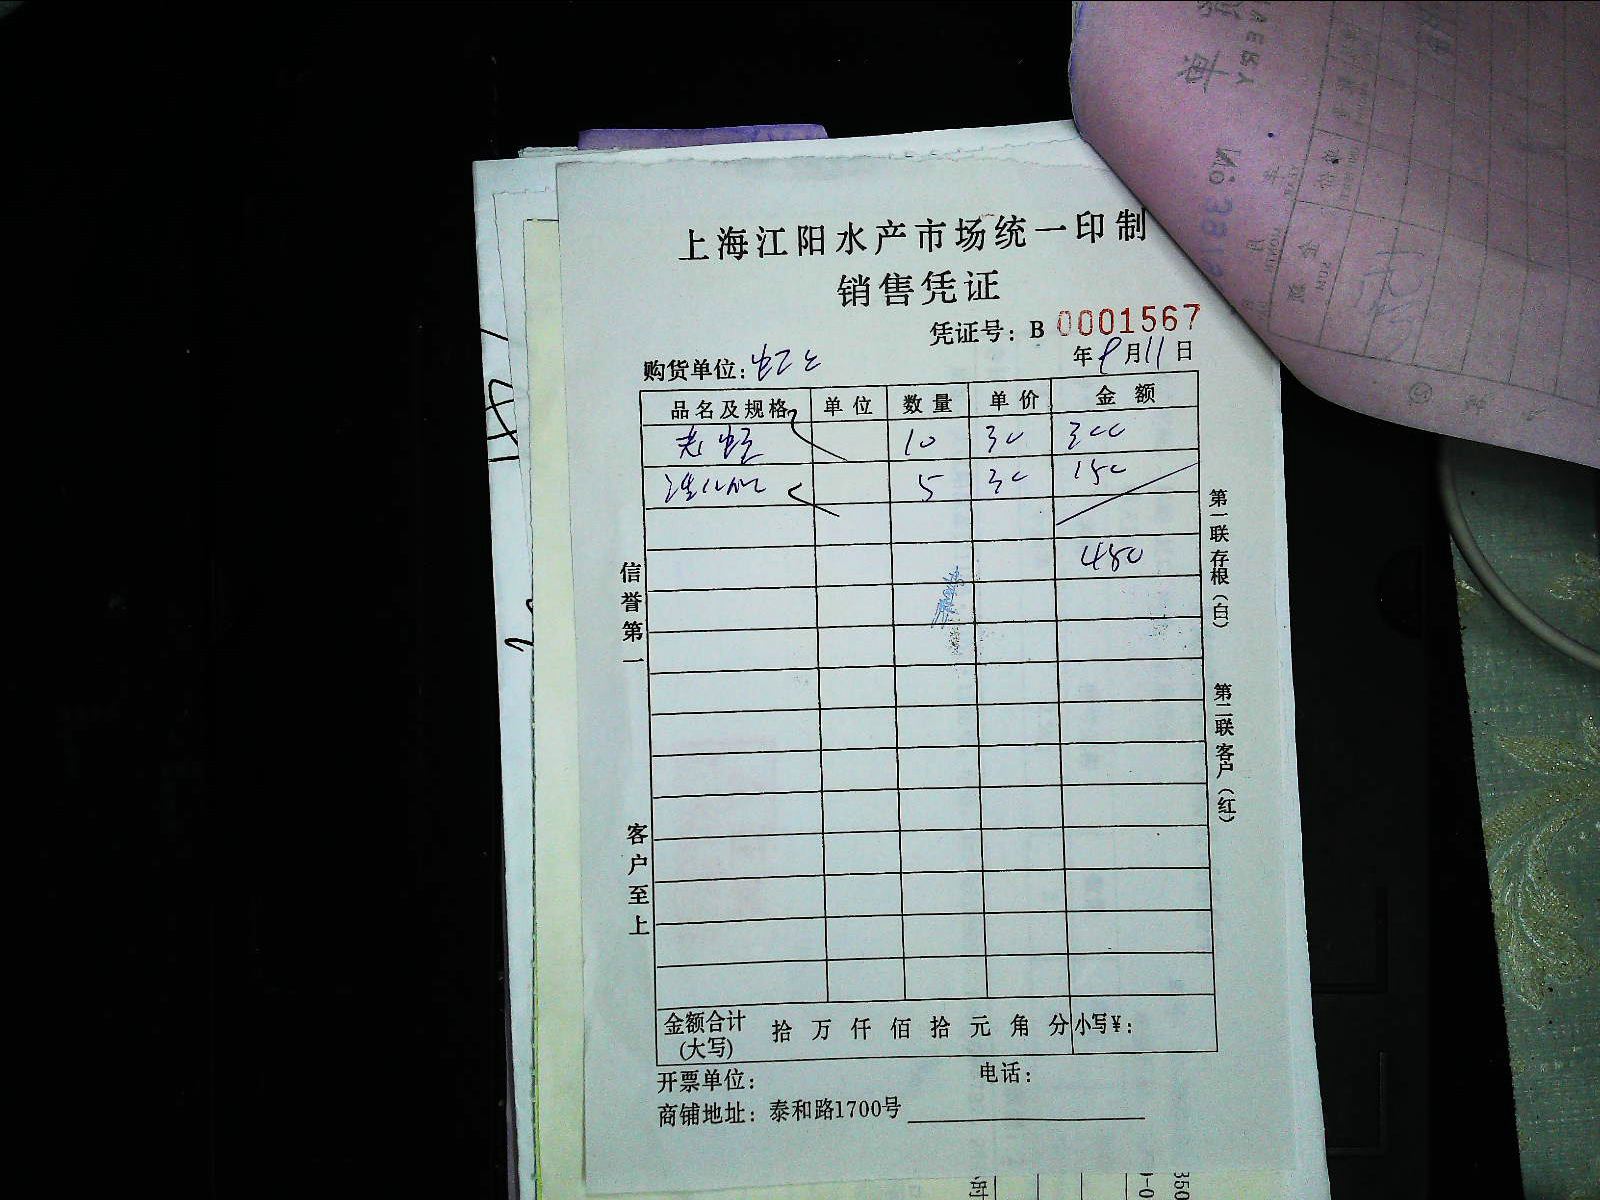 上海江阳水产市场统一印制
销售凭证
凭证号：B 0001567
购货单位： 年9月11日
品名及规格 单位 数量 单价 金额
10 30 300
5 30 150
450
信誉第一
客户至上
第一联存根（白）
第二联客户（红）
金额合计(大写) 拾 万 仟 佰 拾 元 角 分 小写¥：
开票单位： 电话：
商铺地址：泰和路1700号